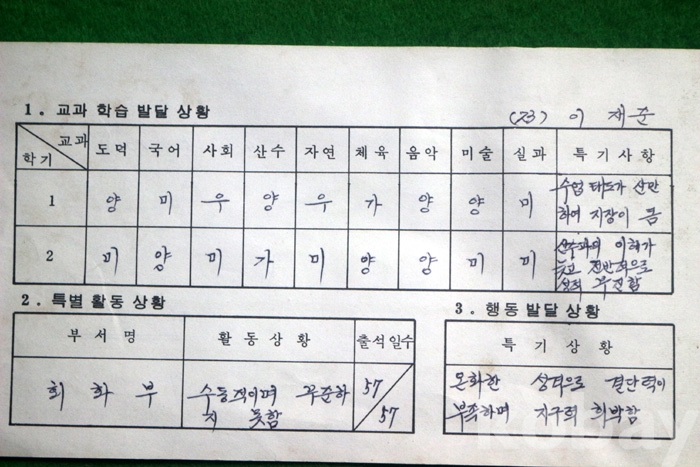 1. 교과 학습 발달 상황
(23) 이 재준
교과 학기 도덕 국어 사회 산수 자연 체육 음악 미술 실과 특기사항
1 양 미 우 양 우 가 양 양 미 수업 태도가 산만
하여 지장이 큼
2 미 양 미 가 미 양 양 미 미 산수과의 이해가
늦고 전반적으로
성적 부진함
2. 특별 활동 상황
부서명 활동상황 출석일수
회화부 수동적이며 꾸준하
지 못함
57
57
3. 행동 발달 상황
특기상황
온화한 성격으로 결단력이
부족하며 지구력 희박함
KOBAY